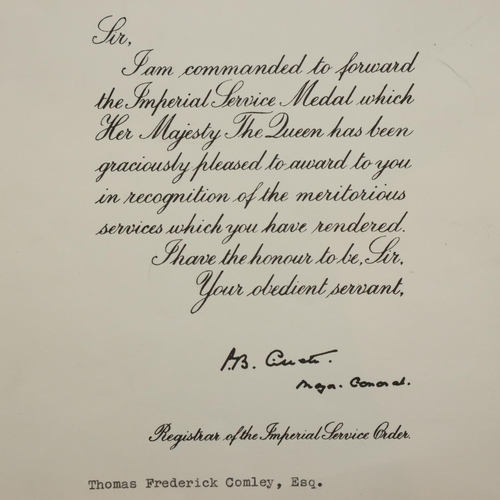 Sir,
I am commanded to forward
the Imperial Service Medal which
Her Majesty The Queen has been
graciously pleased to award to you
in recognition of the meritorious
services which you have rendered.
I have the honour to be, Sir,
Your obedient servant,
P.B.
General.
Registrar of the Imperial Service Order.
Thomas Frederick Comley, Esq.